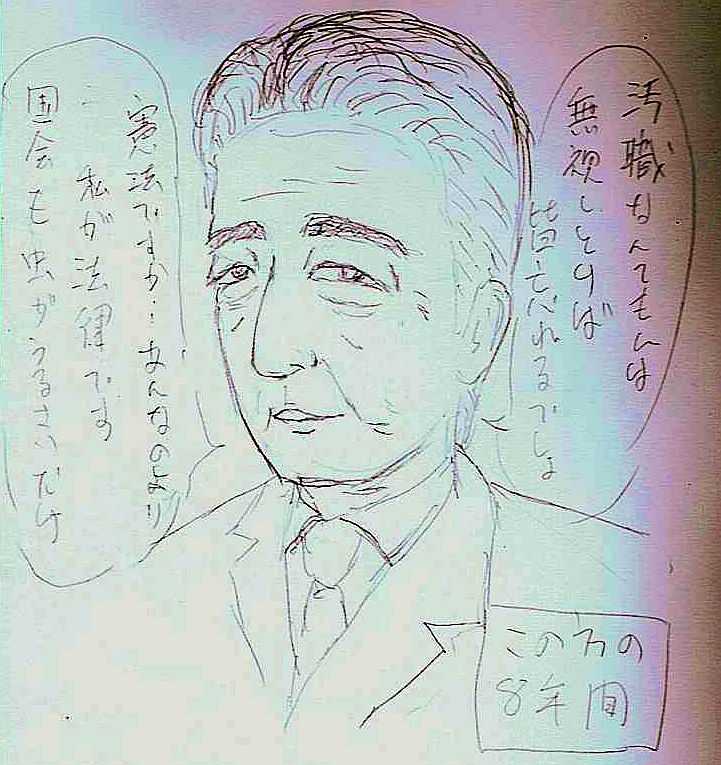 汚職なんてもんは
無視しとけば
皆忘れるでしょ
憲法ですか…あんなのより
私が法律です
国会も虫がうるさいだけ
この方の
8年間